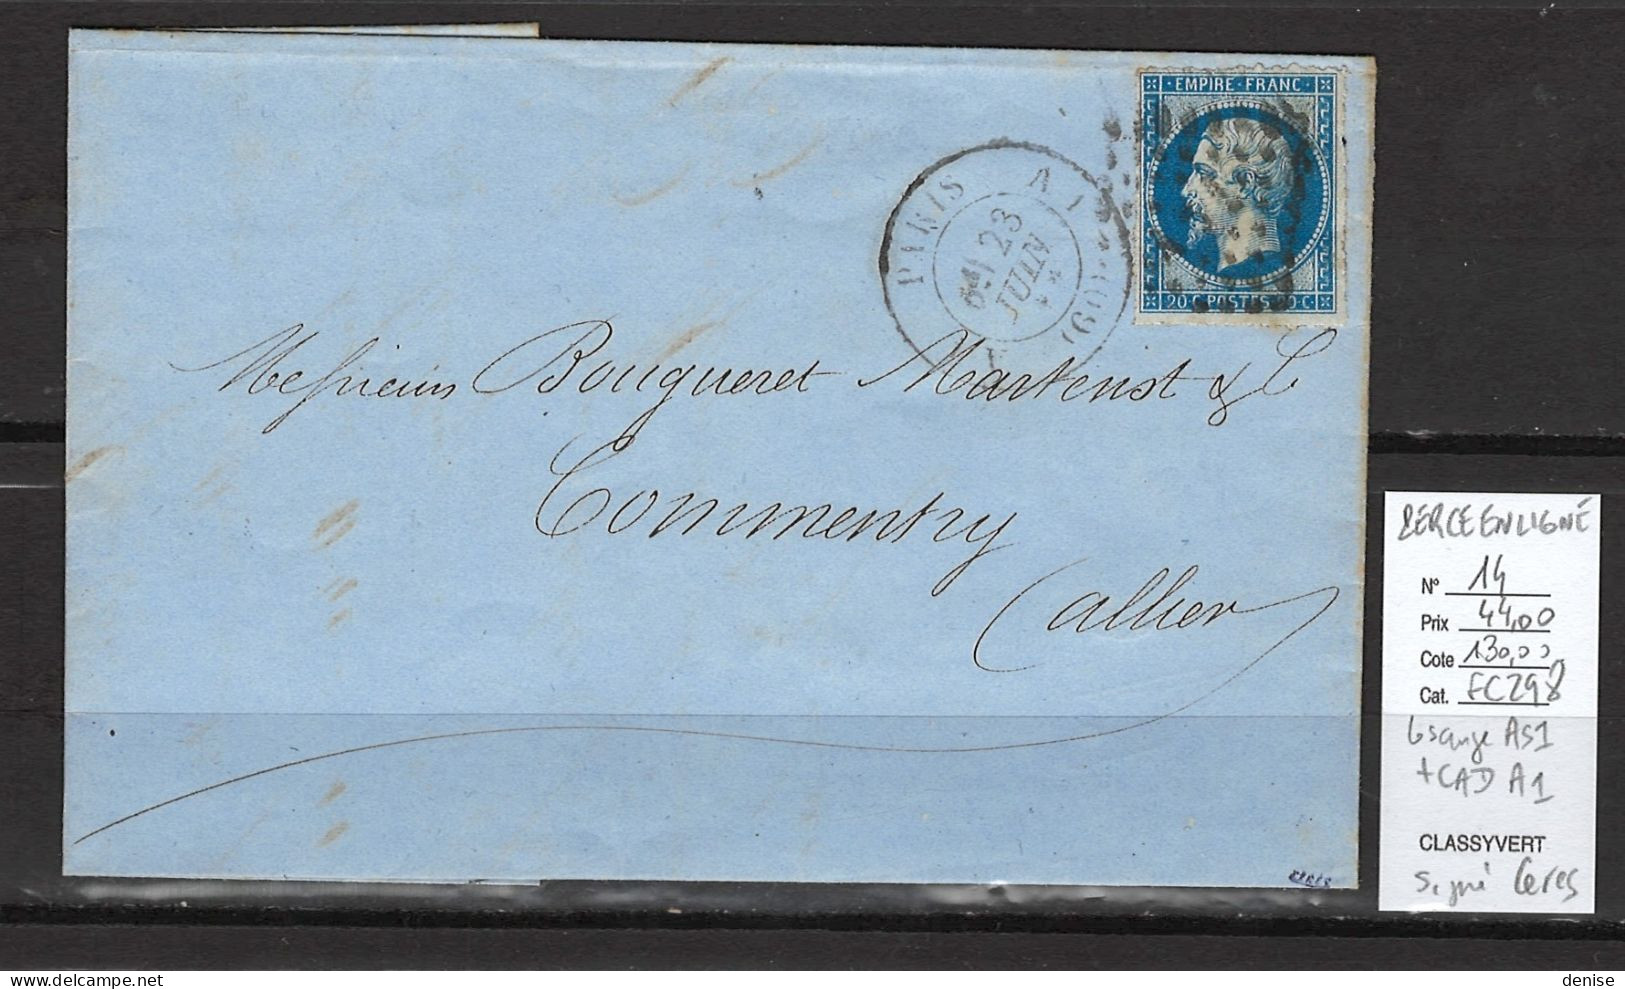 EMPIRE FRANC
20 C POSTES 20 C
PARIS A 1
23
JUIN
(60)
Messieurs Bougueret Martenot & C
Commentry
Allier
PERCE EN LIGNE
N° 14
Prix 44,00
Cote 130,00
Cat. FC298
Losange AS1
+ CAD A1
CLASSYVERT
Signé Ceres
denise